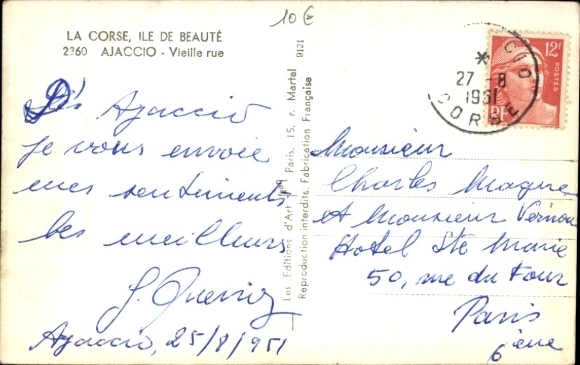 10 €
LA CORSE, ILE DE BEAUTÉ
2360 AJACCIO - Vieille rue
D'Ajaccio
je vous envoie
mes sentiments
les meilleurs
Ajaccio, 25/8/951
9121
Les Editions d'Art Paris, 15, r. Martel
Reproduction interdite. Fabrication Française
12F
POSTES
RF
27 -8
1951
CORSE
Monsieur
Charles
et Monsieur Vernou
Hotel Ste Marie
50, rue du Four
Paris
6ème